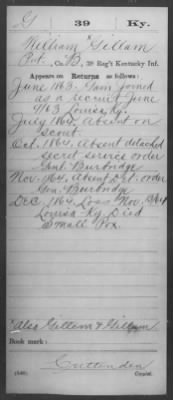 G | 39 | Ky.
William Gillam
Pvt., Co. B, 39 Reg't Kentucky Inf.
Appears on Returns as follows:
June 1863. Gain joined
as a recruit June
9/63 Louisa, Ky.
July 1864 Absent on
scout.
Oct. 1864. Absent detached
secret service order
Genl. Burbridge
Nov. 1864. Absent Det. order
Gen. Burbridge
Dec. 1864. Loss Nov.
Louisa Ky. Died
Small Pox.
*Also Gillem & Gillum
Book mark:
Crittenden
(546) Copyist.